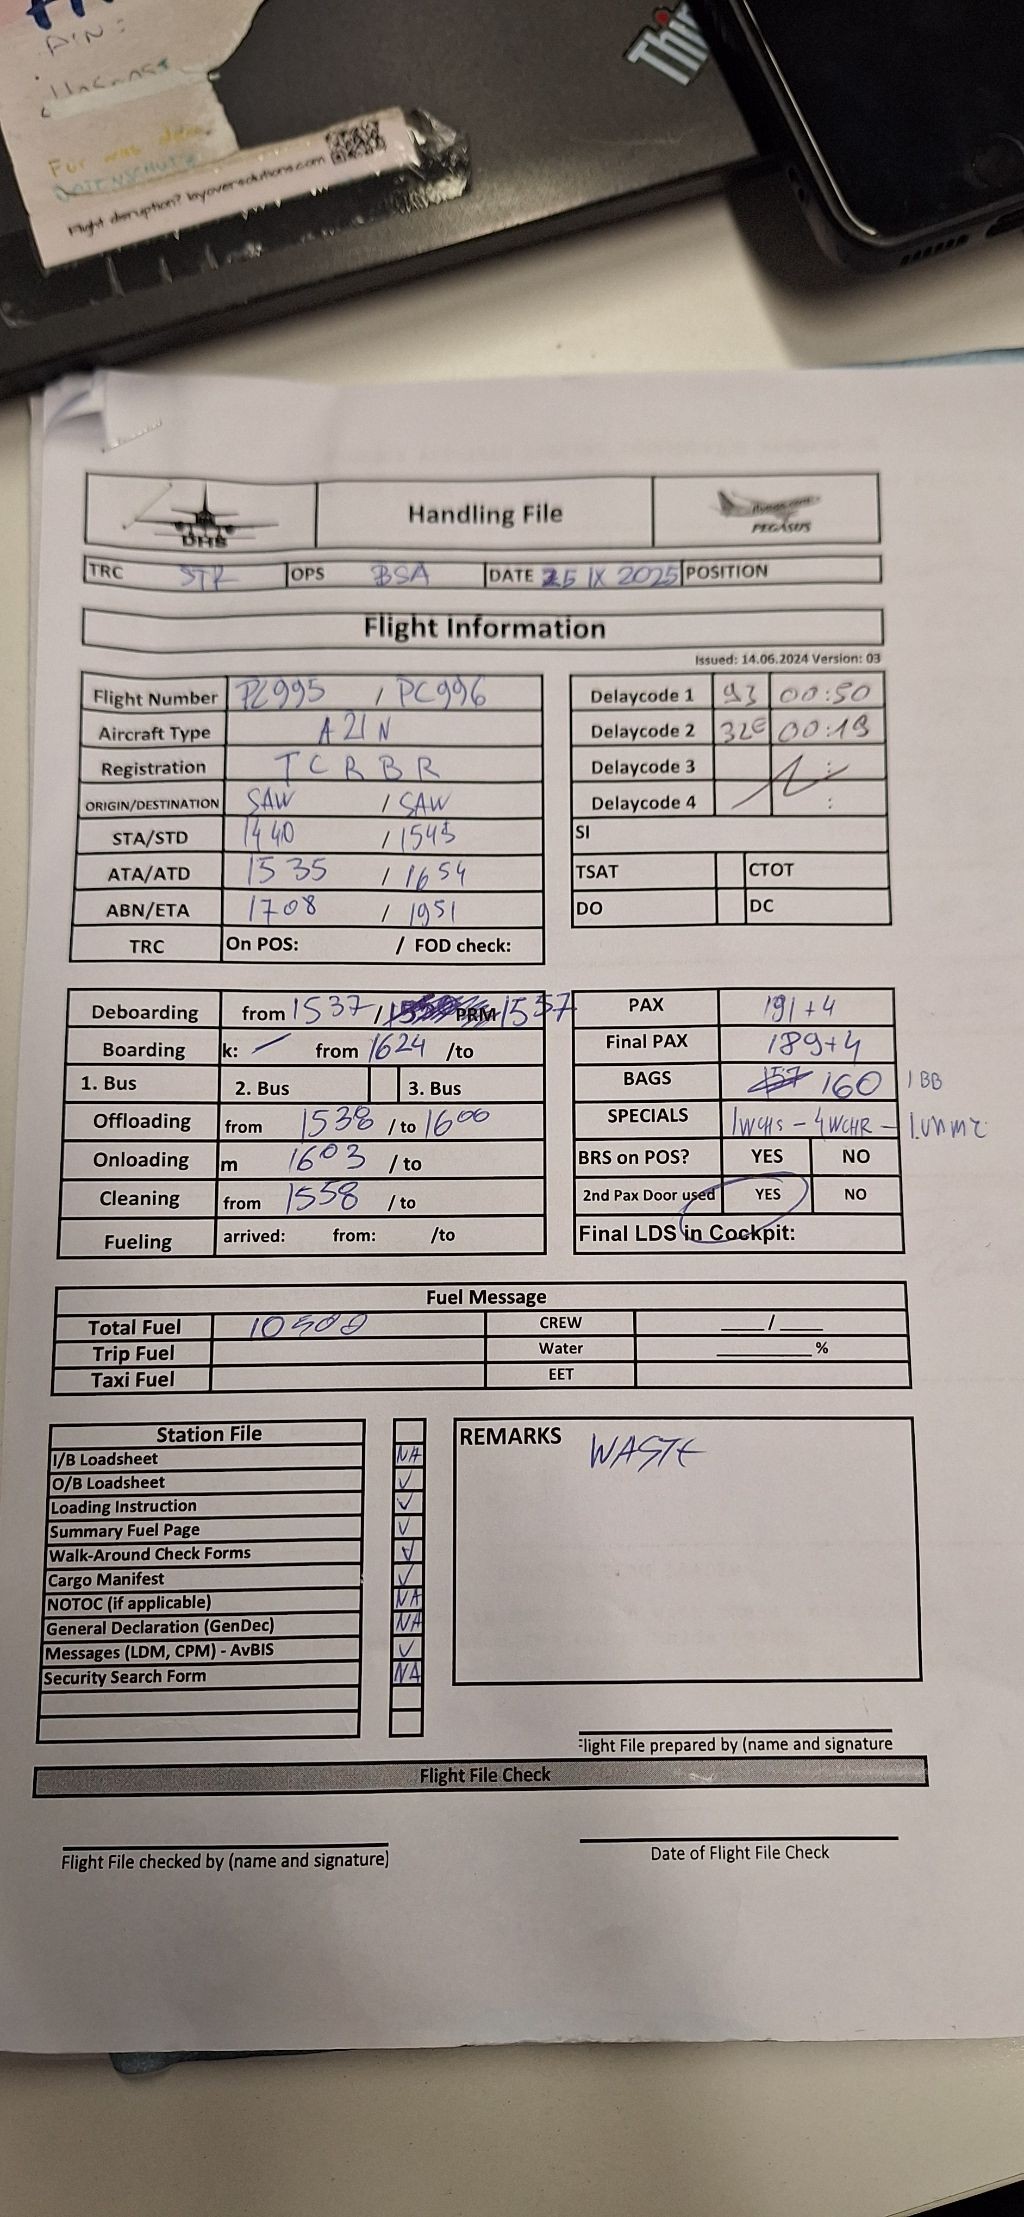 PIN:
Für was dein
DATENSCHUTZ
Flight disruption? layoversolutions.com
Thin
DHS
Handling File
PEGASUS
TRC STR OPS BSA DATE 25 IX 2025 POSITION
Flight Information
Issued: 14.06.2024 Version: 03
Flight Number PC995 / PC996
Aircraft Type A21N
Registration TCRBR
ORIGIN/DESTINATION SAW / SAW
STA/STD 1440 / 1545
ATA/ATD 1535 / 1654
ABN/ETA 1708 / 1951
TRC On POS: / FOD check:
Delaycode 1 93 00:50
Delaycode 2 32E 00:19
Delaycode 3 :
Delaycode 4 :
SI
TSAT CTOT
DO DC
Deboarding from 1537 / PRM 1557
Boarding k: from 1624 /to
1. Bus 2. Bus 3. Bus
Offloading from 1538 / to 1600
Onloading m 1603 / to
Cleaning from 1558 / to
Fueling arrived: from: /to
PAX 191+4
Final PAX 189+4
BAGS 157 160 1BB
SPECIALS 1WCHS - 4WCHR -
BRS on POS? YES NO
2nd Pax Door used YES NO
Final LDS in Cockpit:
Fuel Message
Total Fuel 10500 CREW ____/____
Trip Fuel Water ________%
Taxi Fuel EET
Station File
I/B Loadsheet NA
O/B Loadsheet ✓
Loading Instruction ✓
Summary Fuel Page ✓
Walk-Around Check Forms ✓
Cargo Manifest ✓
NOTOC (if applicable) NA
General Declaration (GenDec) NA
Messages (LDM, CPM) - AvBIS ✓
Security Search Form NA
REMARKS WASTE
Flight File prepared by (name and signature
Flight File Check
Flight File checked by (name and signature)
Date of Flight File Check